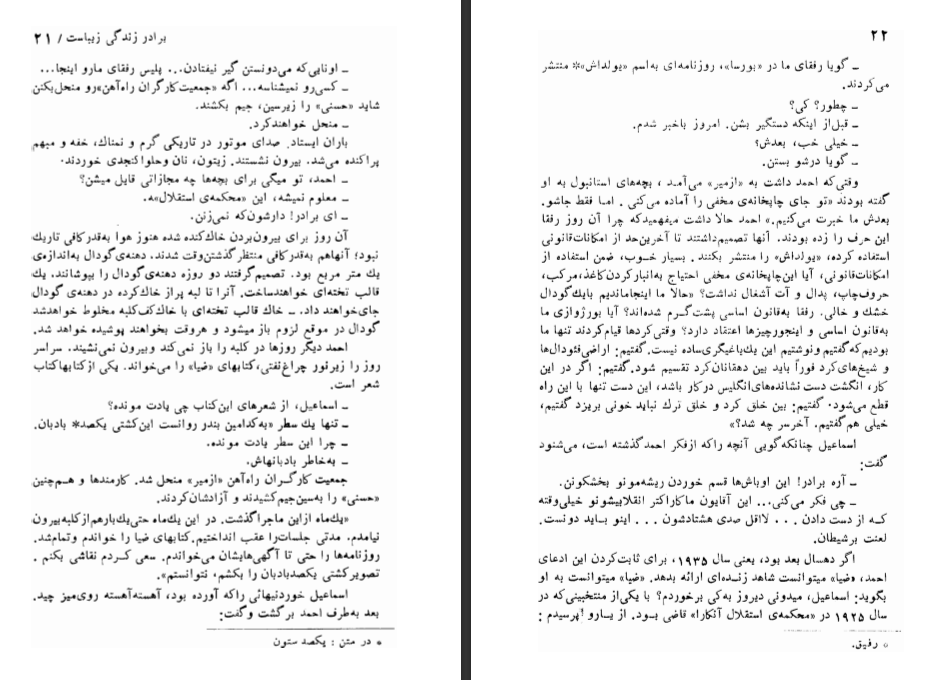 برادر زندگی زیباست / ۲۱
ــ اونایی‌که می‌دونستن گیر نیفتادن... پلیس رفقای مارو اینجا...
ــ کسی‌رو نمیشناسه... اگه «جمعیت‌کارگران راه‌آهن»رو منحل‌بکنن
شاید «حسنی» را زیرسین، جیم بکشند.
ــ منحل خواهندکرد.
باران ایستاد. صدای موتور در تاریکی گرم و نمناك، خفه و مبهم
پراکنده می‌شد. بیرون نشستند. زیتون، نان وحلواکنجدی خوردند.
ــ احمد، تو میگی برای بچه‌ها چه مجازاتی قایل میشن؟
ــ معلوم نمیشه، این «محکمه‌ی استقلال»ه.
ــ ای برادر! دارشون‌که نمی‌زنن.
آن روز برای بیرون‌بردن خاك‌کنده شده هنوز هوا به‌قدرکافی تاریك
نبود؛ آنهاهم به‌قدرکافی منتظرگذشتن‌وقت شدند. دهنه‌ی گودال به‌اندازه‌ی
یك متر مربع بود. تصمیم‌گرفتند دو روزه دهنه‌ی گودال را بپوشانند. یك
قالب تخته‌ای خواهندساخت. آنرا تا لبه پراز خاك‌کرده در دهنه‌ی گودال
جای‌خواهند داد. ــ خاك قالب تخته‌ای با خاك‌کف‌کلبه مخلوط خواهدشد
گودال در موقع لزوم باز میشود و هروقت بخواهند پوشیده خواهد شد.
احمد دیگر روزها در کلبه را باز نمی‌کند وبیرون نمی‌نشیند. سراسر
روز را زیرنور چراغ‌نفتی،کتابهای «ضیا» را می‌خواند. یکی ازکتابهاکتاب
شعر است.
ــ اسماعیل، از شعرهای این‌کتاب چی یادت مونده؟
ــ تنها یك سطر «به‌کدامین بندر روانست این‌کشتی یکصد* بادبان.
ــ چرا این سطر یادت مونده.
ــ به‌خاطر بادبانهاش.
جمعیت کارگـران راه‌آهن «ازمیر» منحل شد. کارمندها و هـم‌چنین
«حسنی» را به‌سین‌جیم‌کشیدند و آزادشان‌کردند.
«یك‌ماه ازاین ماجراگذشت. در این یك‌ماه حتی‌یك‌بارهم ازکلبه‌بیرون
نیامدم. مدتی جلسات‌را عقب انداختیم.کتابهای ضیا را خواندم وتمام‌شد.
روزنامه‌ها را حتی تا آگهی‌هایشان می‌خواندم. سعی کـردم نقاشی بکنم .
تصویرکشتی یکصدبادبان را بکشم، نتوانستم».
اسماعیل خوردنیهائی راکه آورده بود، آهسته‌آهسته روی‌میز چید.
بعد به‌طرف احمد برگشت وگفت:
* در متن : یکصد ستون
۲۲
ــ گویا رفقای ما در «بورسا»، روزنامه‌ای به‌اسم «یولداش»* منتشر
می‌کردند.
ــ چطور؟ کی؟
ــ قبل‌از اینکه دستگیر بشن. امروز باخبر شدم.
ــ خیلی خب، بعدش؟
ــ گویا درشو بستن.
وقتی‌که احمد داشت به «ازمیر» می‌آمـد ، بچه‌های استانبول به او
گفته بودند «تو جای چاپخانه‌ی مخفی را آماده می‌کنی . امـا فقط جاشو.
بعدش ما خبرت می‌کنیم.» احمد حالا داشت میفهمیدکه چرا آن روز رفقا
این حرف را زده بودند. آنها تصمیم‌داشتند تا آخرین‌حد از امکانات‌قانونی
استفاده کرده، «یولداش» را منتشر بکنند. بسیار خـوب، ضمن استفاده از
امکانات‌قانونی، آیا این‌چاپخانه‌ی مخفی احتیاج به‌انبارکردن‌کاغذ،مرکب،
حروف‌چاپ، پدال و آت آشغال نداشت؟ «حالا ما اینجاماندیم بایك‌گودال
خشك و خالی. رفقا به‌قانون اساسی پشت‌گـرم شده‌اند؟ آیا بورژوازی ما
به‌قانون اساسی و اینجورچیزها اعتقاد دارد؟ وقتی‌کردها قیام‌کردند تنها ما
بودیم‌که‌گفتیم ونوشتیم این یك‌یاغیگری‌ساده نیست.گفتیم: اراضی‌فئودال‌ها
و شیخ‌های‌کرد فوراً باید بین دهقانان‌کرد تقسیم شود.گفتیم: اگر در این
کار، انگشت دست نشانده‌های‌انگلیس درکار باشد، این دست تنها با این راه
قطع می‌شود. گفتیم: بین خلق کرد و خلق ترك نباید خونی بریزد گفتیم،
خیلی هم‌گفتیم. آخرسر چه شد؟»
اسماعیل چنانکه‌گویی آنچه راکه ازفکر احمدگذشته است، می‌شنود
گفت:
ــ آره برادر! این اوباش‌ها قسم خوردن ریشه‌مونو بخشکونن.
ــ چی فکر می‌کنی... این آقایون ماکاراکتر انقلابیشونو خیلی‌وقته
کـه از دست دادن . . . لااقل صدی هشتادشون . . . اینو بـاید دونست.
لعنت برشیطان.
اگر ده‌سال بعد بود، یعنی سال ۱۹۳۵، برای ثابت‌کردن این ادعای
احمد، «ضیا» میتوانست شاهد زنـده‌ای ارائه بدهد. «ضیا» میتوانست به او
بگوید: اسماعیل، میدونی دیروز به‌کی برخوردم؟ با یکی‌از منتخبینی‌که در
سال ۱۹۲۵ در «محکمه‌ی استقلال آنکارا» قاضی بـود. از یـارو پرسیدم :
* رفیق.